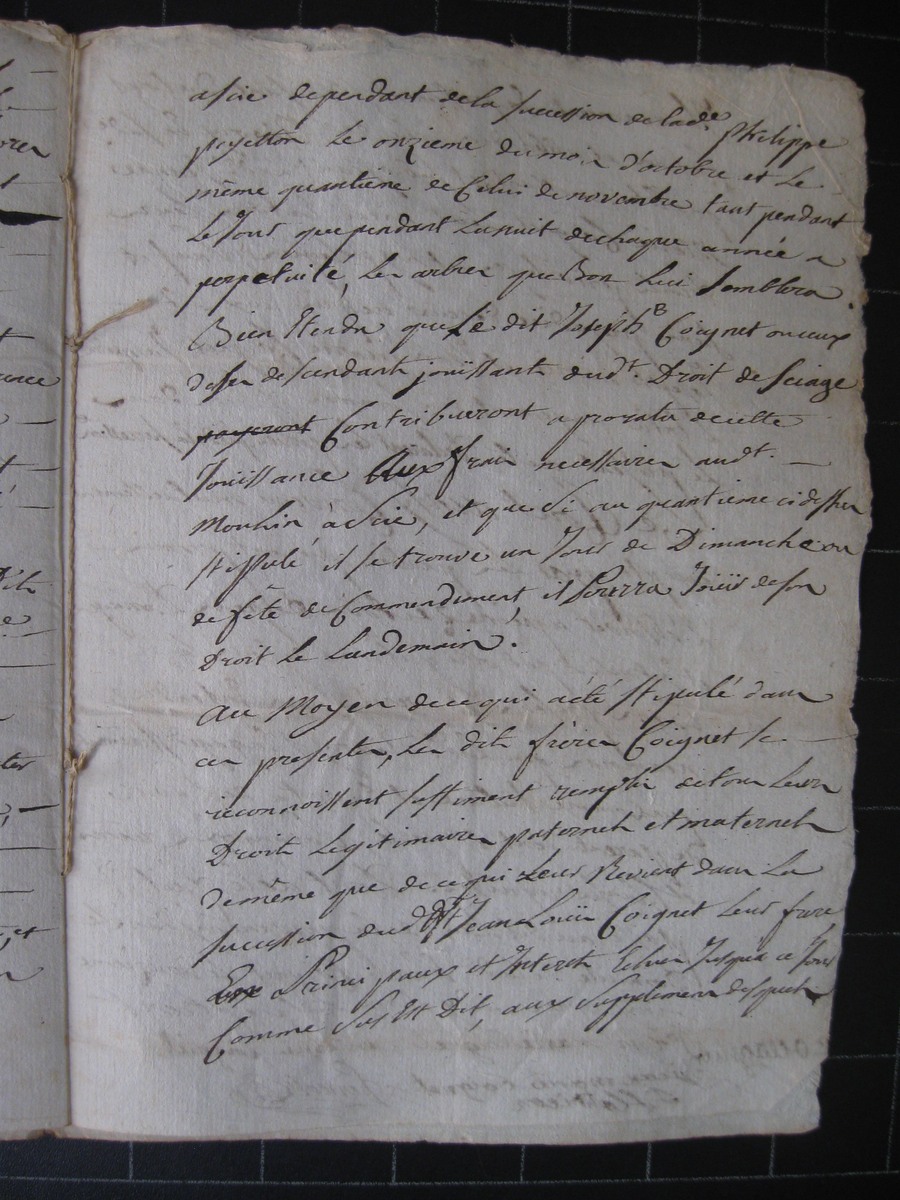 a scie dependant de la succession de lad.e philippe
payetton le onzieme du mois d'octobre et le
même quantiéme de Celui de novembre tant pendant
le Jour que pendant la nuit de chaque année a
perpetuité, les arbres que Bon lui semblera.
Bien Entendu que le dit Joseph B Coignet ou ceux
de ses descendants joüissants dud.t Droit de sciage
payeront Contribueront a prorata de cette
Joüissance Aux frais necessaires aud.t
Moulin à scie, et que si au quantieme ci dessus
stipulé il se trouve un Jour de Dimanche ou
de fête de Commendement, il Pourra Joüir de son
Droit le Landemain.
Au Moyen de ce qui a été stipulé dans
ces presentes, les dits frères Coignet se
reconnoissent suffiment remplis de tous leurs
Droits legitimaires paternels et maternels
de même que de ce qui Leur Revient dans La
succession dud.t Jean Loüis Coignet leur frere
En Principaux et Interets Echus Jusqu'a ce Jour
Comme sus Est Dit, aux supplements desquels